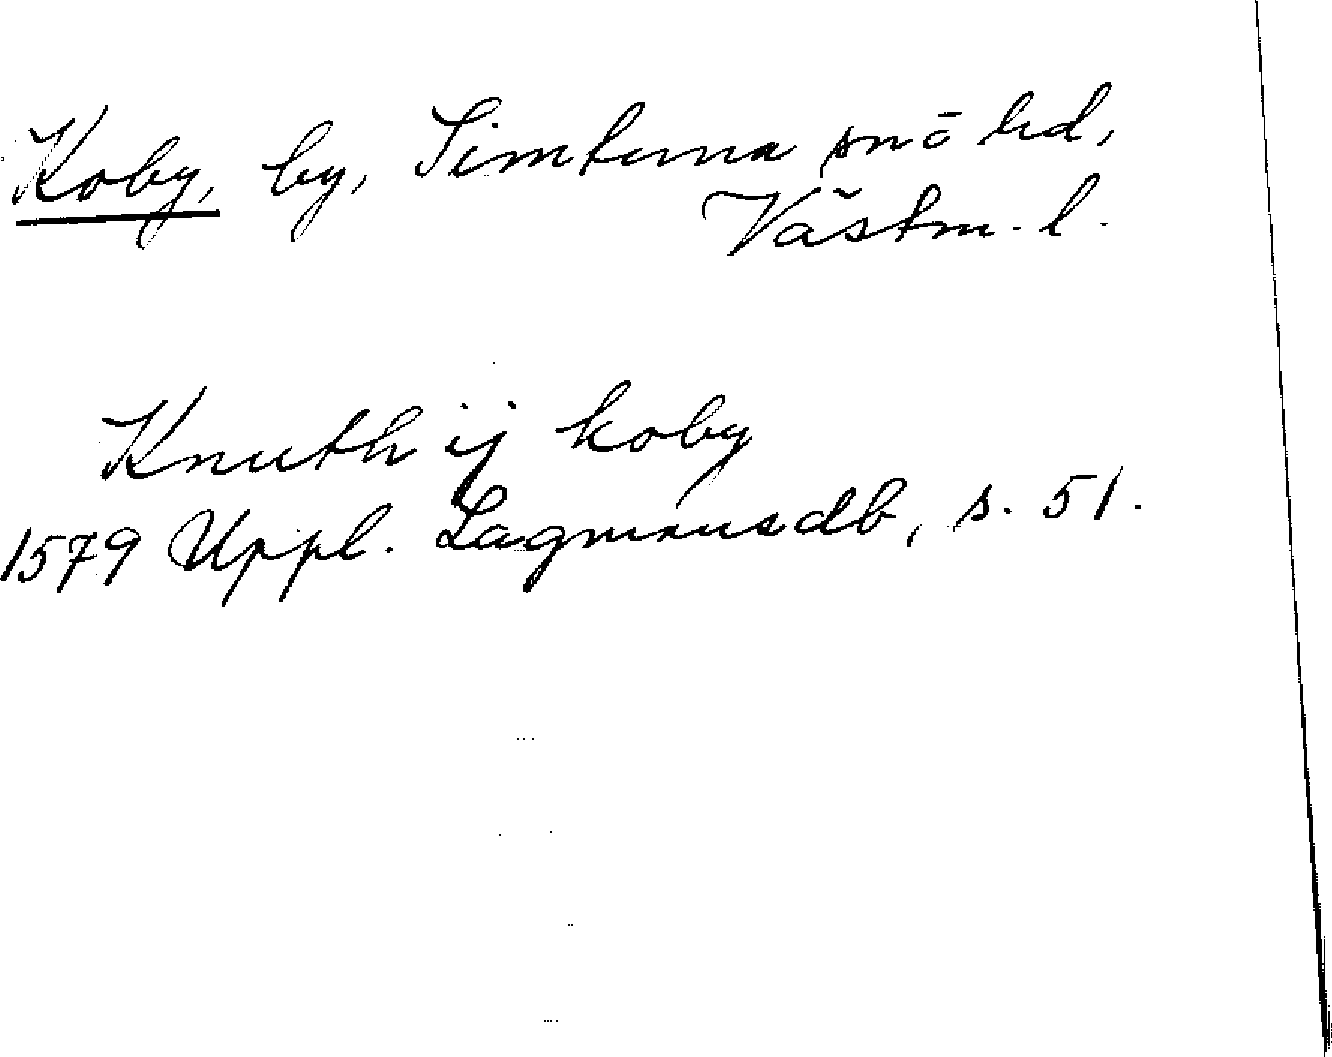 Koby, by, Simtuna sn o hd,
Västm. l.
Knuth ij koby
1579 Uppl. Lagmansdb, s. 51.